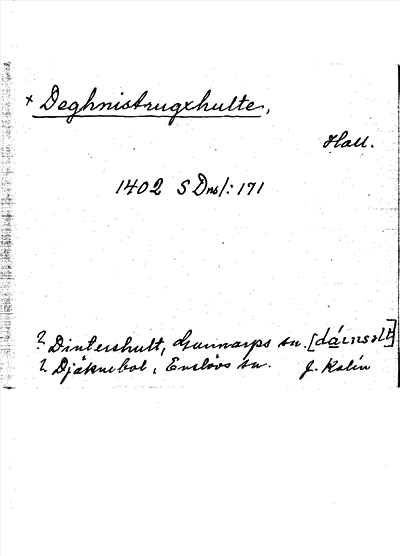 × Deghnistrugxhulte,
Hall.
1402 SDns1: 171
? Dintershult, Gunnarps sn. [dáɩnsəlt]
? Djäknebol, Enslövs sn. J. Kalén